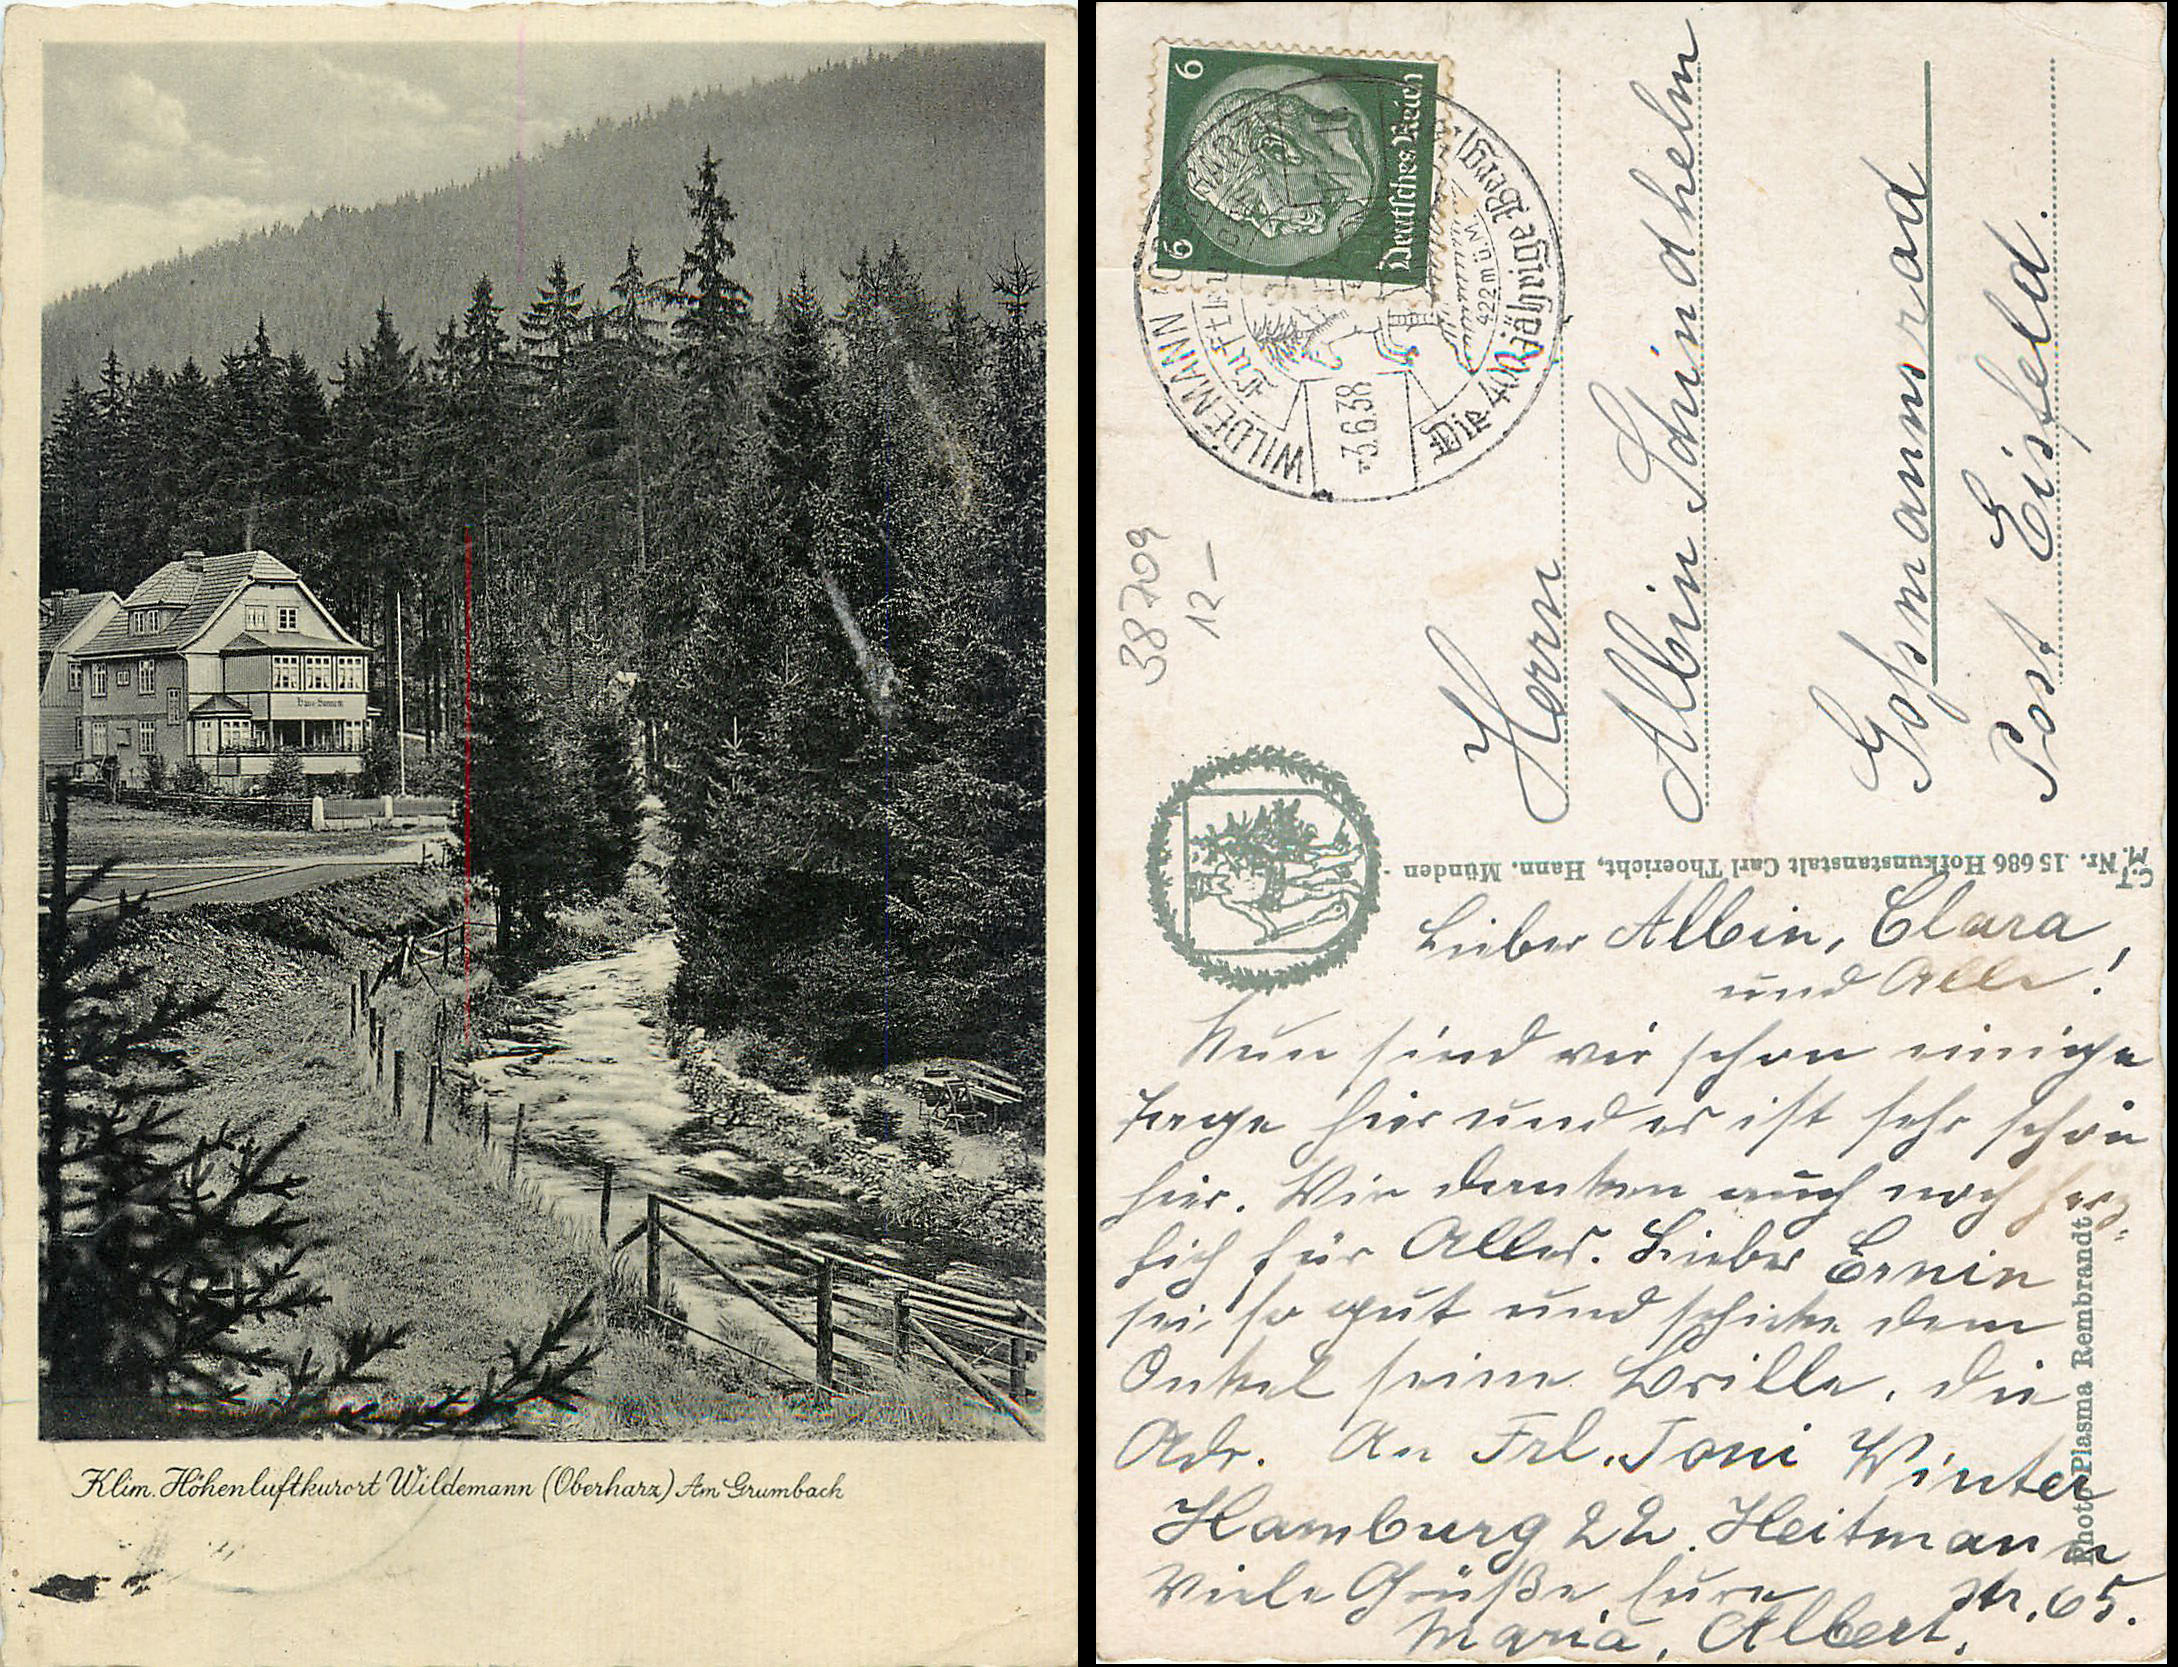 Klim. Höhenluftkurort Wildemann (Oberharz) Am Grumbach
6
6
Deutsches Reich
WILDEMANN
-3.6.38
422 m ü. M.
Die 400jährige Berg
38709
12 –
Herrn
Albin Schindhelm
Goßmannsrod
Post Eisfeld.
C.T.M. Nr. 15 686 Hofkunstanstalt Carl Thoericht, Hann. Münden
Lieber Albin, Clara,
und Alle!
Nun sind wir schon einige
Tage hier und es ist sehr schön
hier. Wir danken auch noch herz-
lich für Alles. Lieber Erwin
sei so gut und schicke dem
Onkel seine Brille, die
Adr. An Frl. Toni Winter
Hamburg 22. Heitmann
Str. 65.
Viele Grüße Eure
Maria, Albert.
Photo Plasma Rembrandt